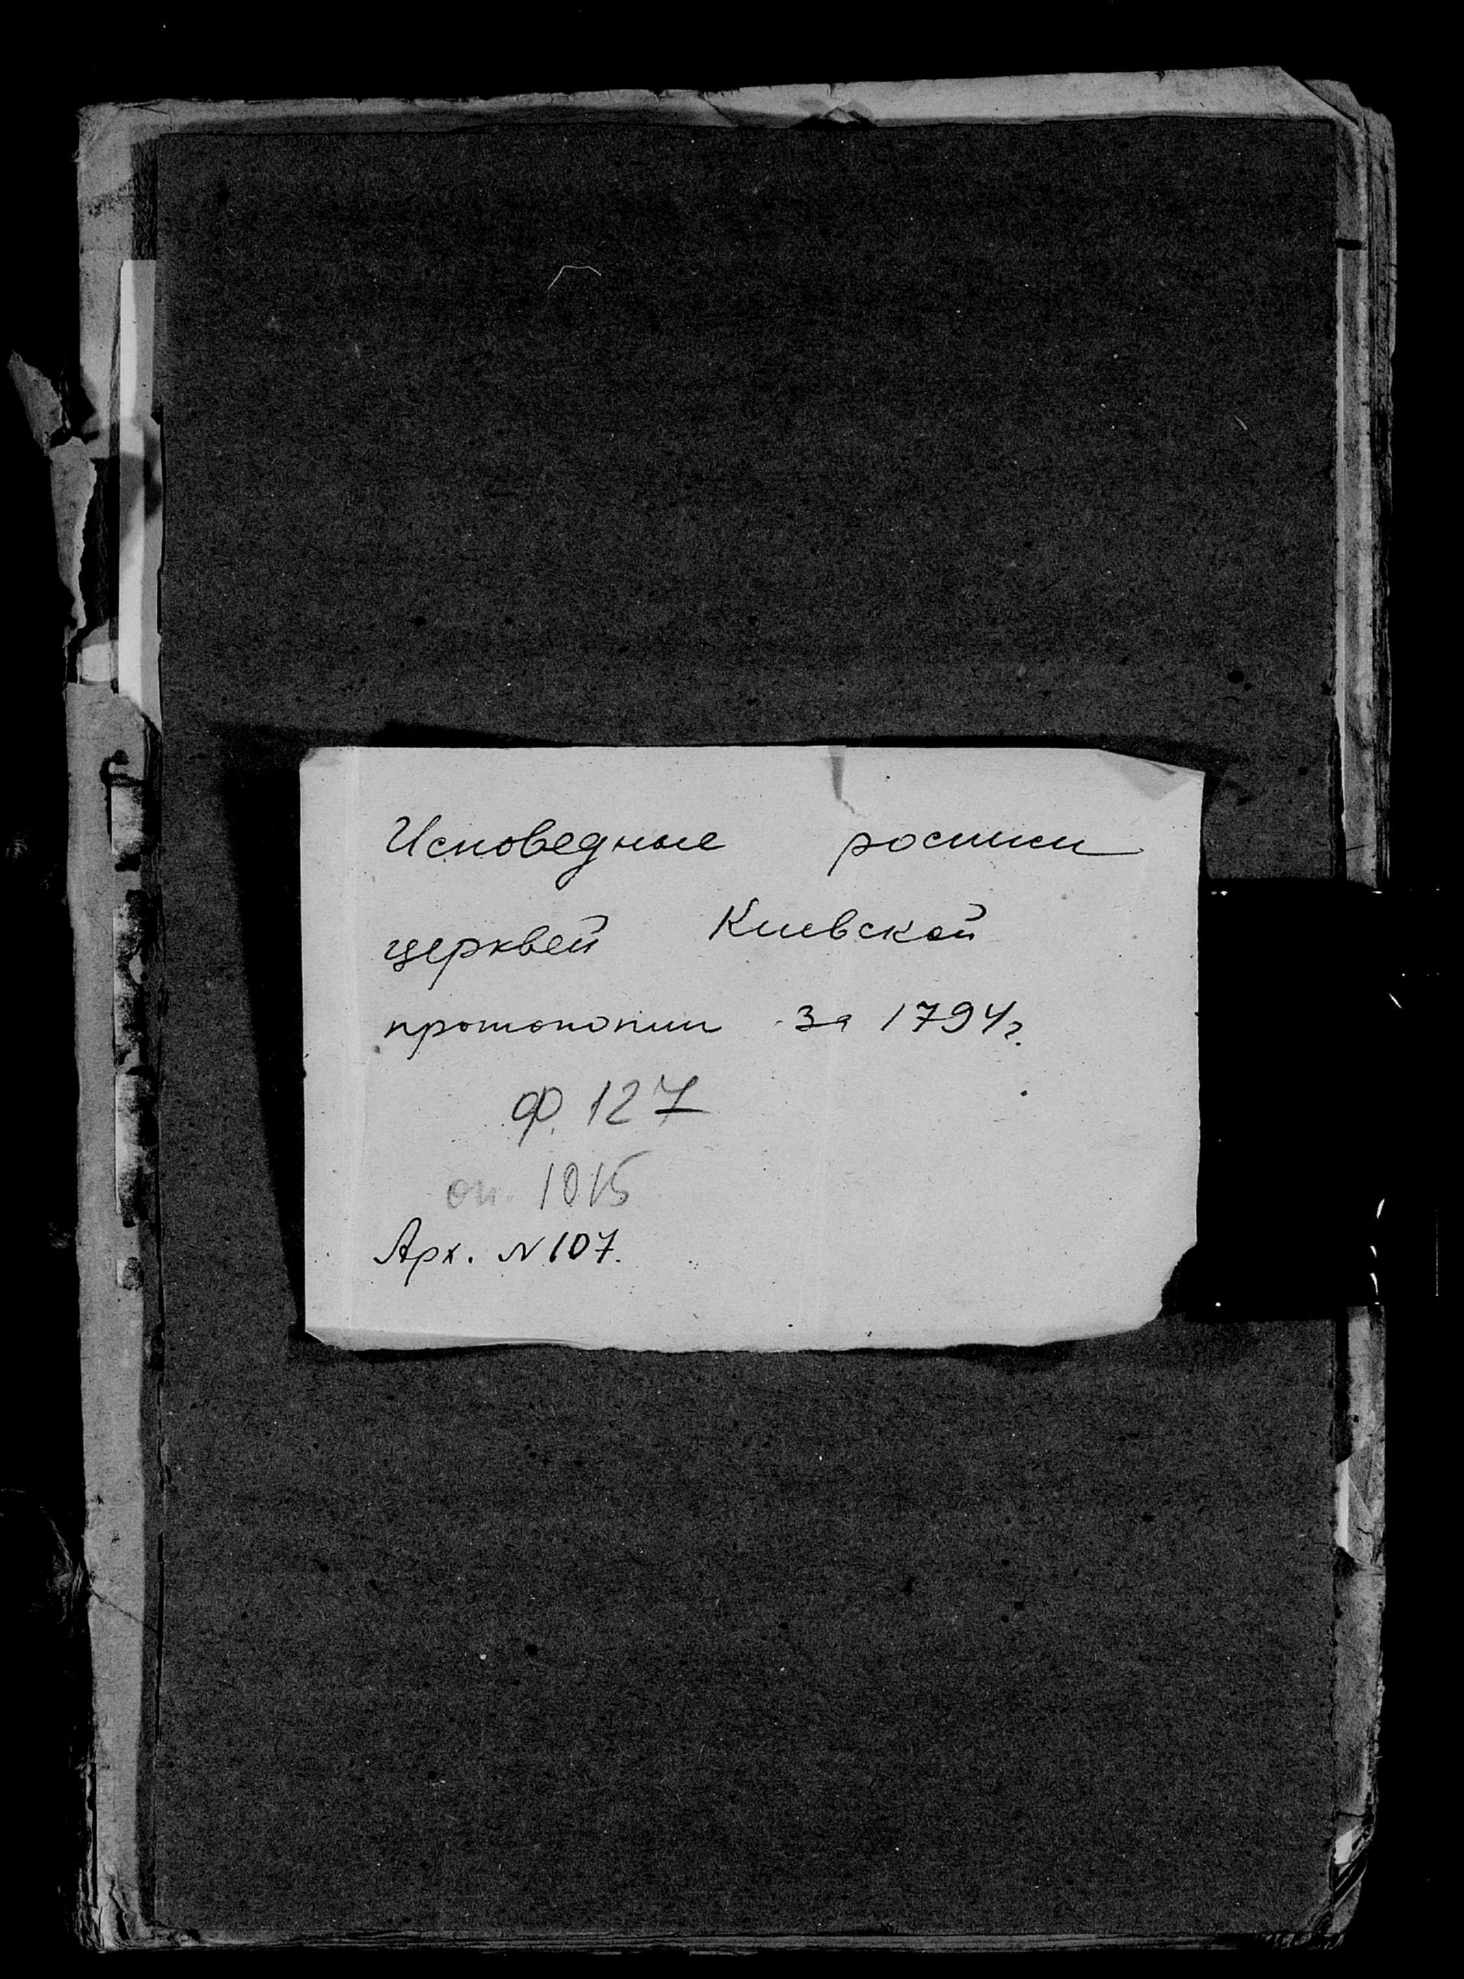 Исповедные росписи
церквей Киевской
протопопии за 1794г.
Ф. 127
оп. 1015
Арх. N107.